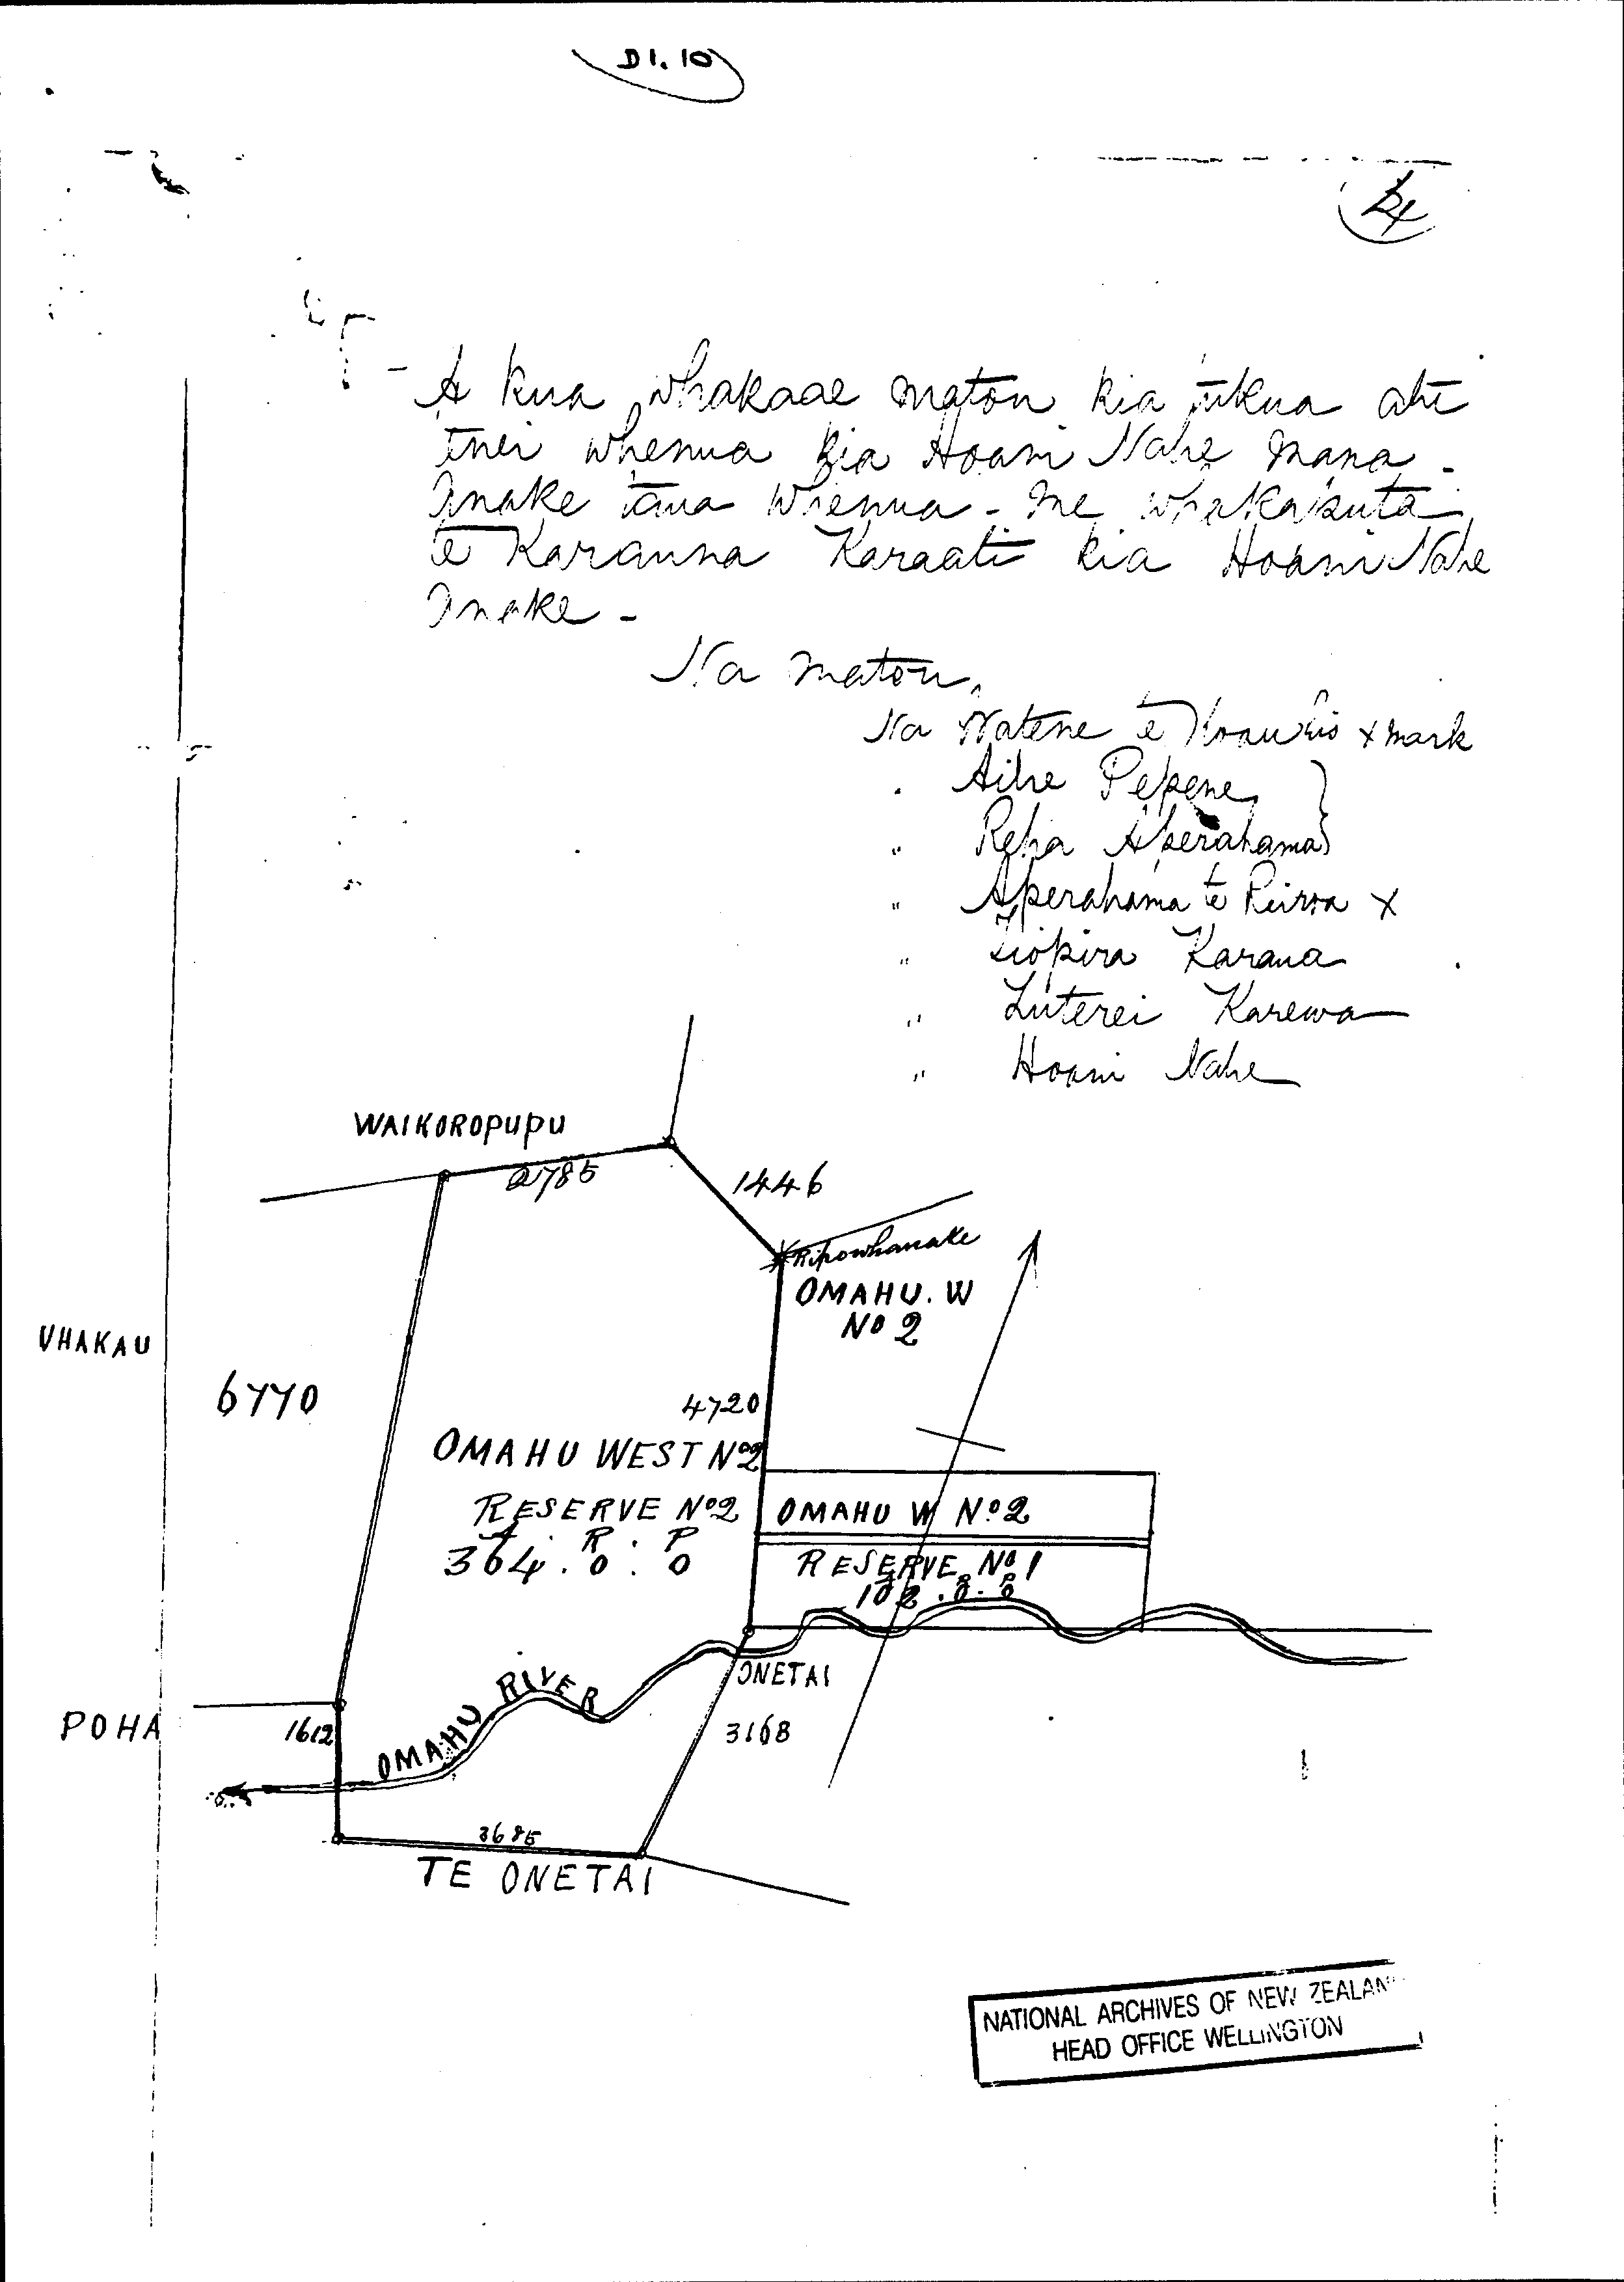 D1.10
A kua whakaae matou kia tukua atu
tenei whenua kia Hoani Nahe mana
anake taua whenua - me whakaputa
te Karauna Karaati kia Hoani Nahe
anake -
Na matou,
Na Watene te his x mark
. Aihe Pepene
" Reha Aperahama
" Aperahama te Reiroa x
" Tiopira Karaua
" Luterei Karewa
" Hoani Nahe
WAIKOROPUPU
2785
1446
Ripowhanake
OMAHU. W
No 2
VHAKAU
6770
4720
OMAHU WEST No 2
RESERVE No 2
A. R. P
364. 0. 0
OMAHU W No. 2
RESERVE No 1
102. 0. 0
ONETAI
OMAHU RIVER
POHA
1612
3168
3685
TE ONETAI
NATIONAL ARCHIVES OF NEW ZEALAN
HEAD OFFICE WELLINGTON